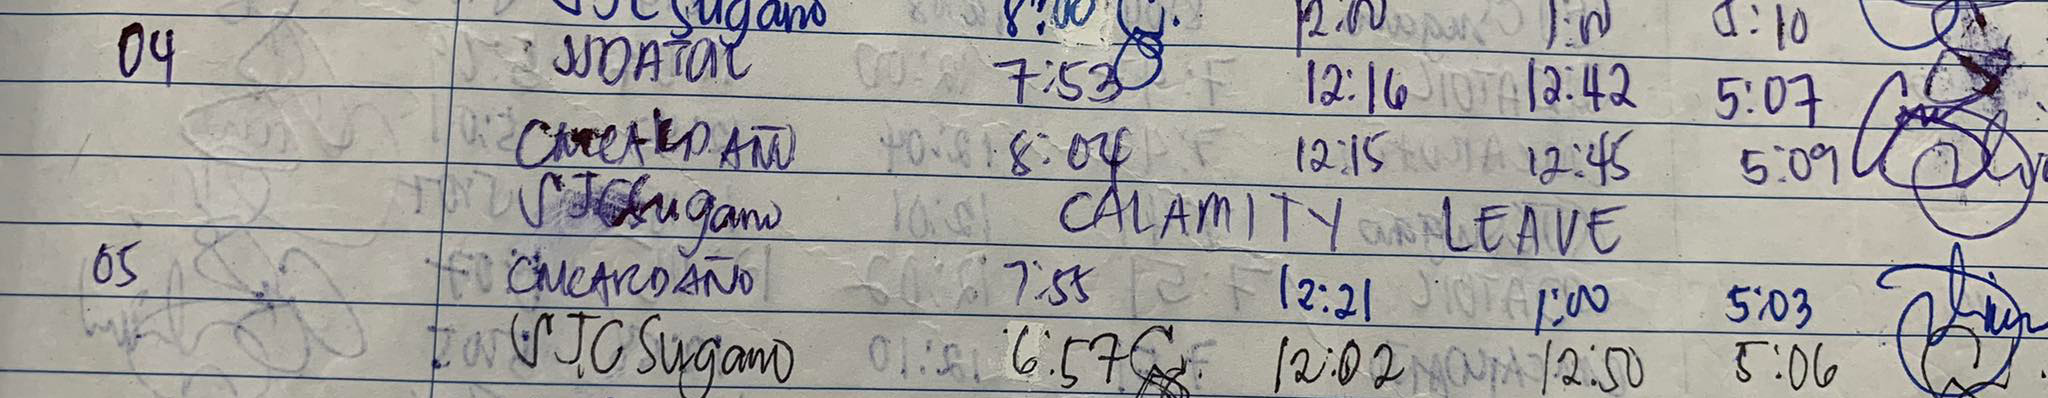 VJCSugano 8:00 12:00 1:00 5:10
04 JJDATOIL 7:53 12:16 12:42 5:07
CMCARDAÑO 8:04 12:15 12:45 5:09
VJCSugano CALAMITY LEAVE
05 CMCARDAÑO 7:55 12:21 1:00 5:03
VJCSugano 6:57 12:02 12:50 5:06